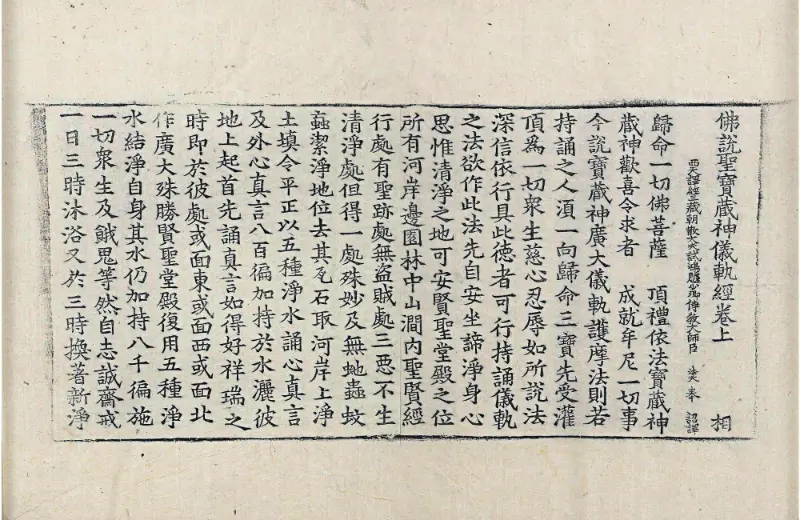 佛說聖寶藏神儀軌經卷上 相
西天譯經三藏朝散大夫試鴻臚少卿傳教大師臣 法天 奉 詔譯
歸命一切佛菩薩 頂禮依法寶藏神
藏神歡喜令求者 成就牟尼一切事
今說寶藏神廣大儀軌護摩法則若
持誦之人湏一向歸命三寶先受灌
頂為一切衆生慈心忍辱如所說法
深信依行具此德者可行持誦儀軌
之法欲作此法先自安坐諦淨身心
思惟清淨之地可安賢聖堂殿之位
所有河岸邊園林中山澗內聖賢經
行處有聖跡處無盜賊處三惡不生
清淨處但得一處殊妙及無虵蟲蚊
蝱潔淨地位去其瓦石取河岸上淨
土填令平正以五種淨水誦心真言
及外心真言八百徧加持於水灑彼
地上起首先誦真言如得好祥瑞之
時即於彼處或面東或面西或面北
作廣大殊勝賢聖堂殿復用五種淨
水結淨自身其水仍加持八千徧施
一切衆生及餓鬼等然自志誠齋戒
一日三時沐浴又於三時換著新淨